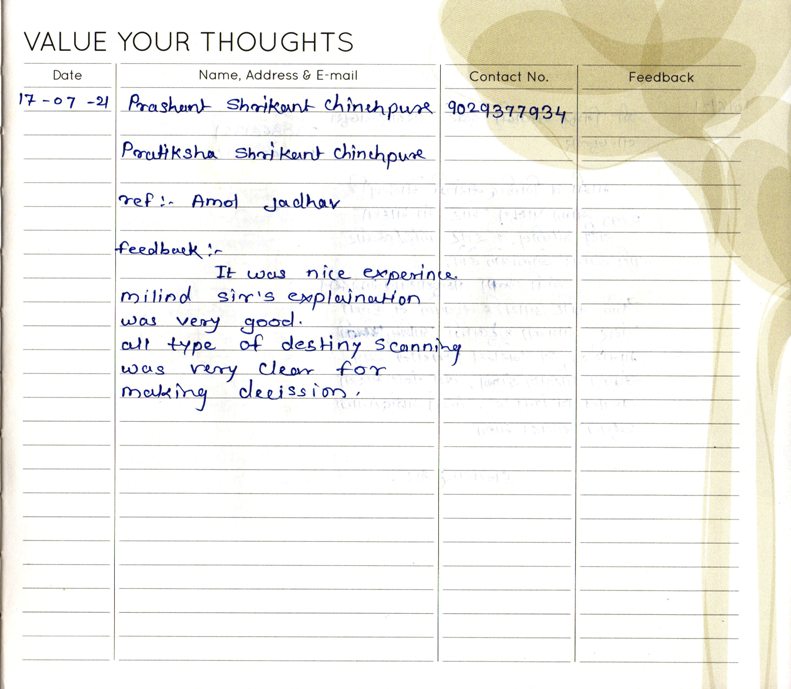 VALUE YOUR THOUGHTS
Date Name, Address & E-mail Contact No. Feedback
17-07-21 Prashant Shrikant Chinchpure 9029377934
Pratiksha Shrikant Chinchpure
ref :- Amol Jadhav
feedback :-
It was nice experince
milind sir's explaination
was very good.
all type of destiny scanning
was very clear for
making decission.